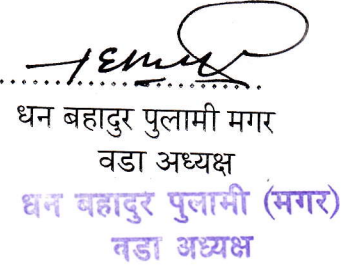 धन बहादुर पुलामी मगर
वडा अध्यक्ष
धन बहादुर पुलामी (मगर)
वडा अध्यक्ष